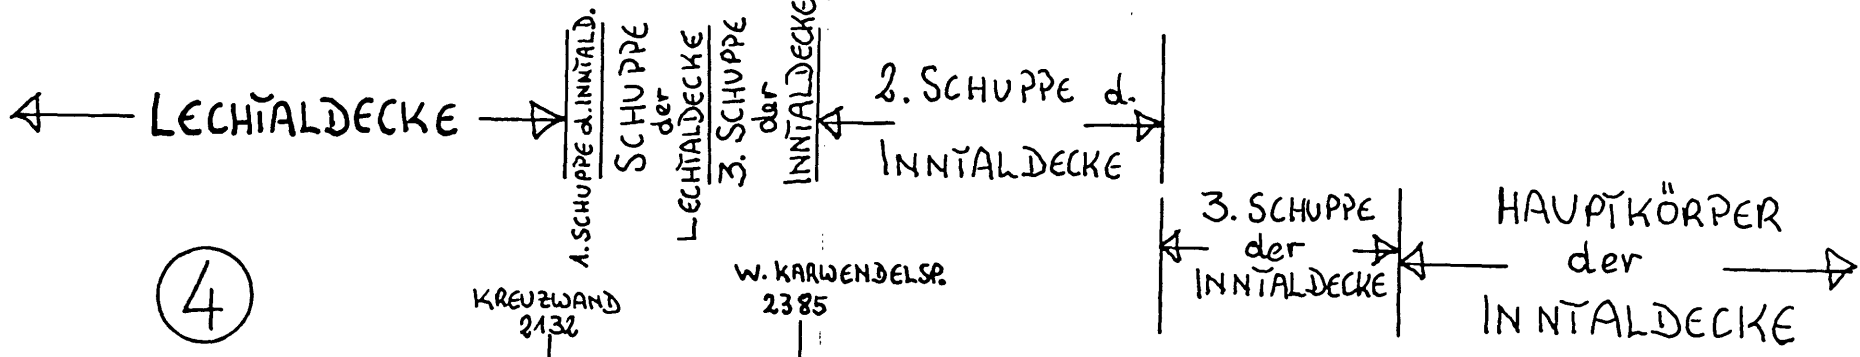 LECHTALDECKE
1. SCHUPPE d. INNTALD.
SCHUPPE
der
LECHTALDECKE
3. SCHUPPE
der
INNTALDECKE
2. SCHUPPE d.
INNTALDECKE
3. SCHUPPE
der
INNTALDECKE
HAUPTKÖRPER
der
INNTALDECKE
4
KREUZWAND
2132
W. KARWENDELSP.
2385